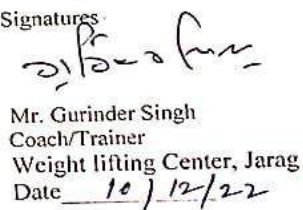 Signatures
Mr. Gurinder Singh
Coach/Trainer
Weight lifting Center, Jarag
Date 10/12/22